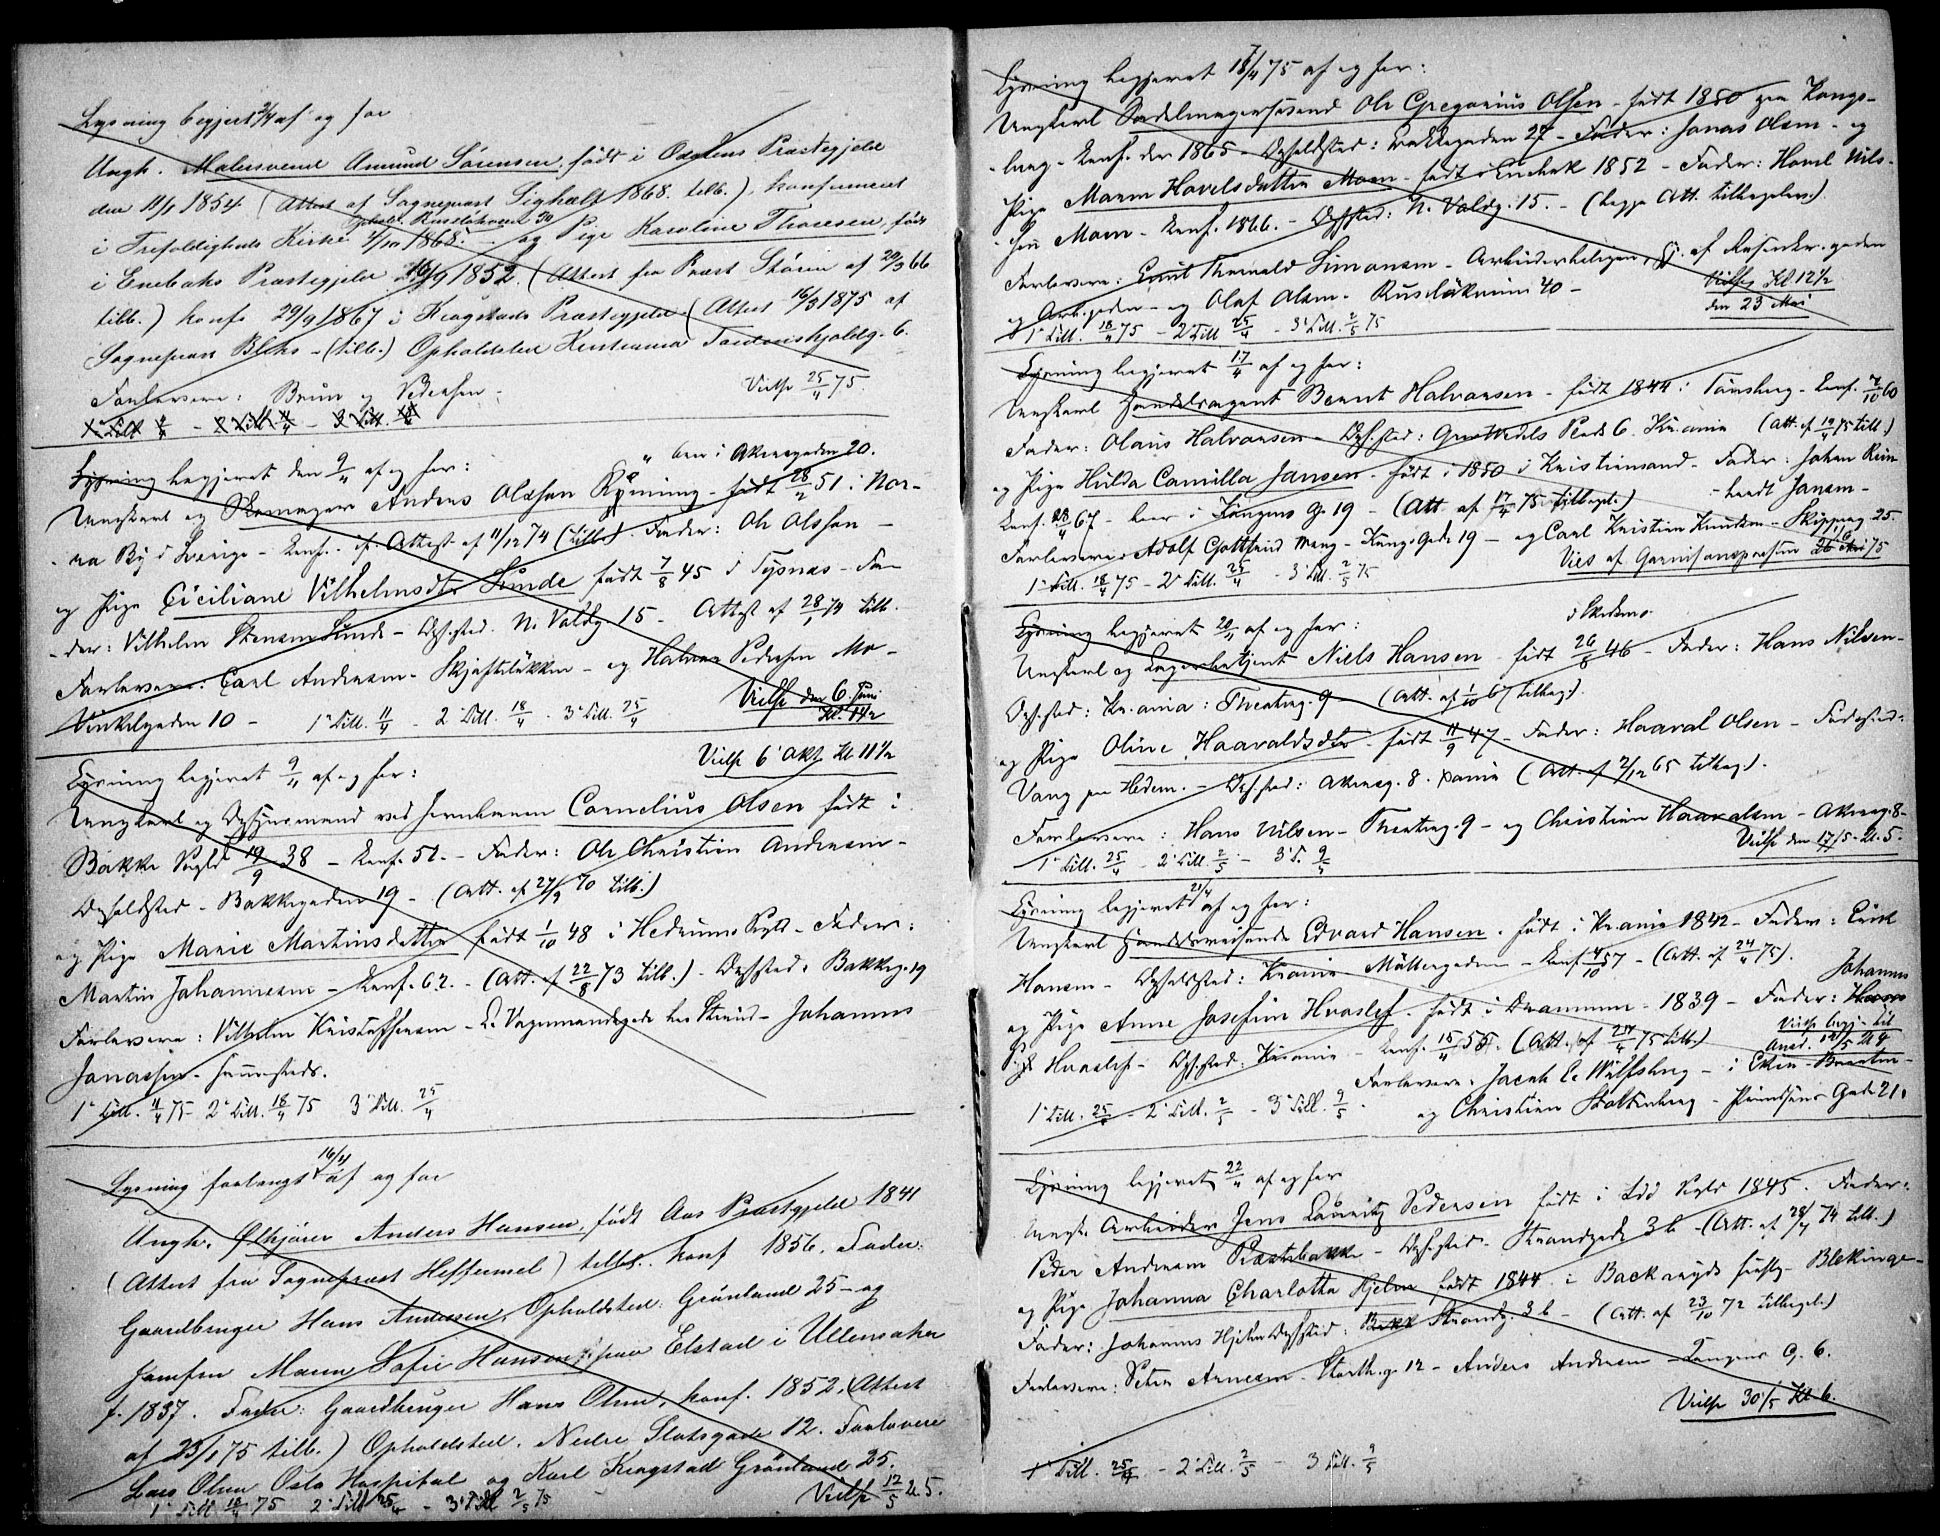 Lysning begjert 2/4 af og for
Ungk. Malersvend Amund Sørensen, født i Odalens Præstegjeld
den 11/1 1854 (Attest af Sognepræst Sighalt 1868. tilb.), konfirmeret
i Trefoldigheds Kirke 4/10 1868. Ophold. Ruseløkveien 30 og Pige Karoline Thoresen, født
i Enebaks Præstegjeld 16/9 1852. (Attest fra Præst Støren af 20/3 66
tilb.) konf. 29/9 1867 i Kragstads Præstegjeld (Attest 16/3 1875 af
Sognepræst Bloks - (tilb.) Opholdsted Kristiania Tordenskjoldg. 6.
Forlovere: Bruun og Pedersen. Vielse 25/4 75.
1ste Till. - 2 Till. 11/4 - 3 Till. 18/4
Lysning begjæret den 9/4 af og for: boer i Akersgaden 20.
Ungkarl og Skomager Anders Olsson Ryning - født 28/2 51 i Nor-
ra By i Sverige - Konf. if. Attest af 11/12 74 (tilb.) Fader: Ole Olsson -
og Pige Ciciliane Vilhelmsdtr Sunde født 7/8 45 i Tysnæs - Fa-
der: Vilhelm Stensen Sunde - Oph.sted. N. Voldg. 15 - Attest af 28/1 74 tilb.
Forlovere: Carl Andersen - Skjæftsløkken - og Halvor Pedersen Mo-
Vinkelgaden 10 - 1' Till. 11/4 - 2' Till. 18/4 - 3' Till. 25/4 Vielse den 6. Juni Kl. 1 1/2
Vielse 6' Okt. Kl 11 1/2
Lysning begjæret 9/4 af og for:
Ungkarl og Opsynsmand ved Jernbanen Cornelius Olsen født i
Bakke Pgld 19/9 38 - Konf. 52. - Fader: Ole Christian Andersen -
Opholdsted - Bakkegaden 19 - (Att. af 27/9 70 tilb.)
og Pige Marie Martinsdatter født 1/10 48 i Hedrums Pgld - Fader:
Martin Johannesen - Konf. 62. - (Att. af 22/8 73 tilb.) - Oph.sted: Bakkeg. 19
Forlovere: Vilhelm Kristoffersen - L. Vognmandsgade - Johannes
Jonassen -
1' Till. 11/4 75 - 2' Till. 18/4 75 3' Till. 25/4
Lysning forlangt 16/4 af og for
Ungk. Ølkjører Anders Hansen, født Aas Præstegjeld 1841
(Attest fra Sognepræst Heffermel) tilb. konf 1856. Fader:
Gaardbruger Hans Andersen, Opholdsted: Grønland 25 - og
Jomfru Maren Sofie Hansen, paa Elstad i Ullensaker
f. 1837. Fader: Gaardbruger Hans Olsen, konf. 1852. (Attest
af 23/1 75 tilb.) Opholdsted. Nedre Slotsgade 12. Forlovere
Lars Olsen Oslo Hospital og Karl Kragstad Grønland 25.
1' Till 18/4 75 2' Till 25/4 - 3' Till 2/5 75 Vielse 12/5 Kl 5.
Lysning begjæret 17/4 75 af og for:
Ungkarl Sadelmagersvend Ole Gregorius Olsen - født 1850 paa Kongs-
berg - Konf. der 1865 - Opholdsted: Bakkegaden 27 - Fader: Jonas Olsen - og
Pige Maren Hovelsdatter Moen - født i Enebak 1852 - Fader: Hovel Nils-
sen Moen - Konf. 1866. - Oph.sted: N. Voldg. 15. - (begge Att. tilbagelev.)
Forlovere: Emil Thorvald Simonsen - Arbeiderboligen, Hj. af Rosenkr. gaden
og Arb.gaden - og Olaf Olsen - Ruseløkveien 40 - Vielse Kl 12 1/2
1' Till. 18/4 75 - 2' Till. 25/4 - 3' Till. 2/5 75 den 23 Mai
Lysning begjæret 17/4 af og for:
Ungkarl Handelsagent Bernt Halvorsen - født 1844 i Tønsberg - Konf. 7/10 60
Fader: Olaus Halvorsen - Oph.sted: Grev Wedels Plads 6. Kr.ania (Att. af 19/4 75 till.)
og Pige Hilda Camilla Jansen - født i 1850 i Kristiansand - Fader: Johan Rein-
hardt Jansen -
Konf. 28/4 67 boer i Kongens G. 19 - (Att. af 17/4 75 tilbagel.)
Forlovere: Adolf Gottfried Wang - Kongs Gade 19 - og Carl Kristian Knudsen - Skipperg. 25.
1' Till. 18/4 75 - 2' Till. 25/4 - 3' Till. 2/5 75 Vies af Garnisonspræsten 26 Mai 75
Lysning begjæret 20/4 af og for: i Skedsmo.
Ungkarl og Lagerbetjent Niels Hansen - født 26/8 46 - Fader: Hans Nilsen -
Oph.sted: Kr.ania: Theaterg. 9 - (Att. af 1/10 67 tilbag.)
og Pige Oline Haavaldsdtr - født 11/9 47 - Fader: Haaval Olsen - Fødested:
Vang paa Hedem. - Oph.sted: Akersg. 8. Xania (Att. af 2/12 65 tilbag.).
Forlovere: Hans Nilsen - Theaterg. 9 - og Christian Haavalsen - Akersg. 8 -
1' Till. 25/4 - 2' Till. 2/5 - 3' T. 9/5 Vielse den 17/5 Kl. 5.
Lysning begjæret 21/4 af og for:
Ungkarl Handelsreisende Edvard Hansen - født i Kr.ania 1842 - Fader: Erik
Hansen - Opholdsted: Krania Møllergaden - Konf. 4/10 57 - (Att. af 24/4 75).
og Pige Anne Josefine Hvoslef - født i Drammen - 1839 - Fader: Johannes
Hvoslef - Oph.sted: Kr.ania - Konf. 15/4 55. (Att. af 24/4 75 tilb.) Vielse begj. til
Forlovere: Jacob L. Wulfsberg - i
1' Till. 25/4 - 2' Till. 2/5 - 3' Till. 9/5. og Christian Stoltenberg - Prindsens Gade 21.
Lysning begjæret 22/4 af og for
Ungk. Arbeider Jens Lauritz Pedersen født i Lid Pgld 1845. Fader:
Peder Andersen Præstebakke - Oph.sted. Strandgade 3 b - (Att. af 28/4 74 tilb.)
og Pige Johanna Charlotta Hjelm født 1844 i Backaryds Blekinge -
Fader: Johannes Hjelm Oph.sted: Strandg. 3 b - (Att. af 23/10 72 tilbagel.)
Forlovere: Peter Arnesen - Storth.g. 12 - Anders Andersen - Langes G. 6.
Vielse 30/5 Kl 6.
1' Till. 25/4 - 2' Till. 2/5 - 3 Till. 9/5